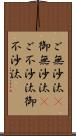 ご無沙汰︵
御無沙汰︵
ご不沙汰御
不沙汰︵︵